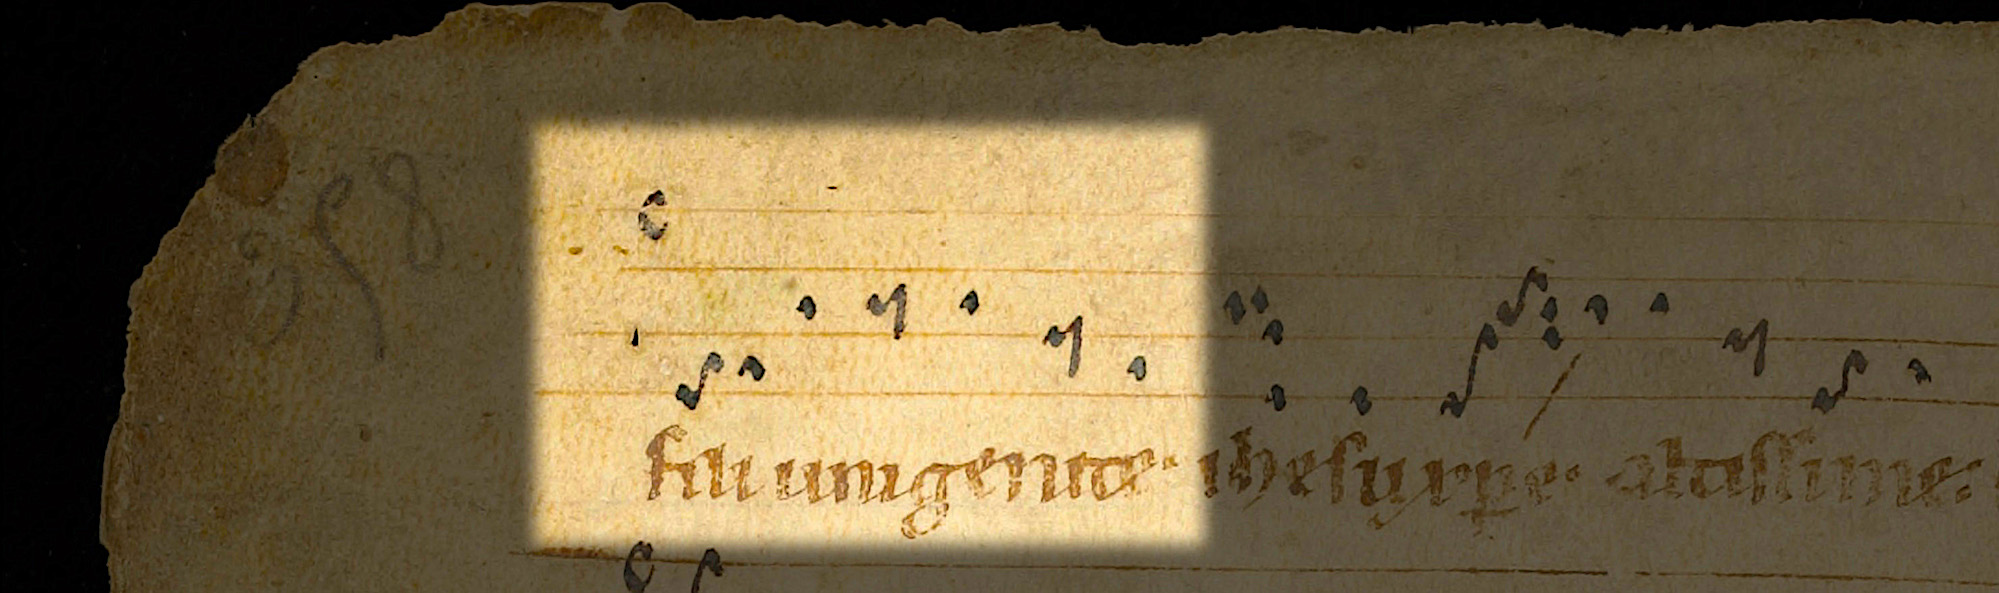 358
C
fili unigenite· ihesu xpe· altissime·
C